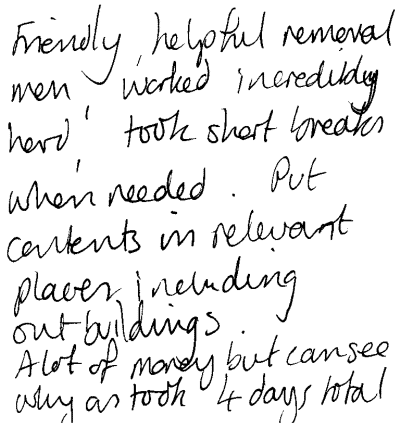 Friendly, helpful removal
men, worked incredibly
hard, took short breaks
when needed. Put
contents in relevant
places, including
outbuildings.
A lot of money but can see
why as took 4 days total